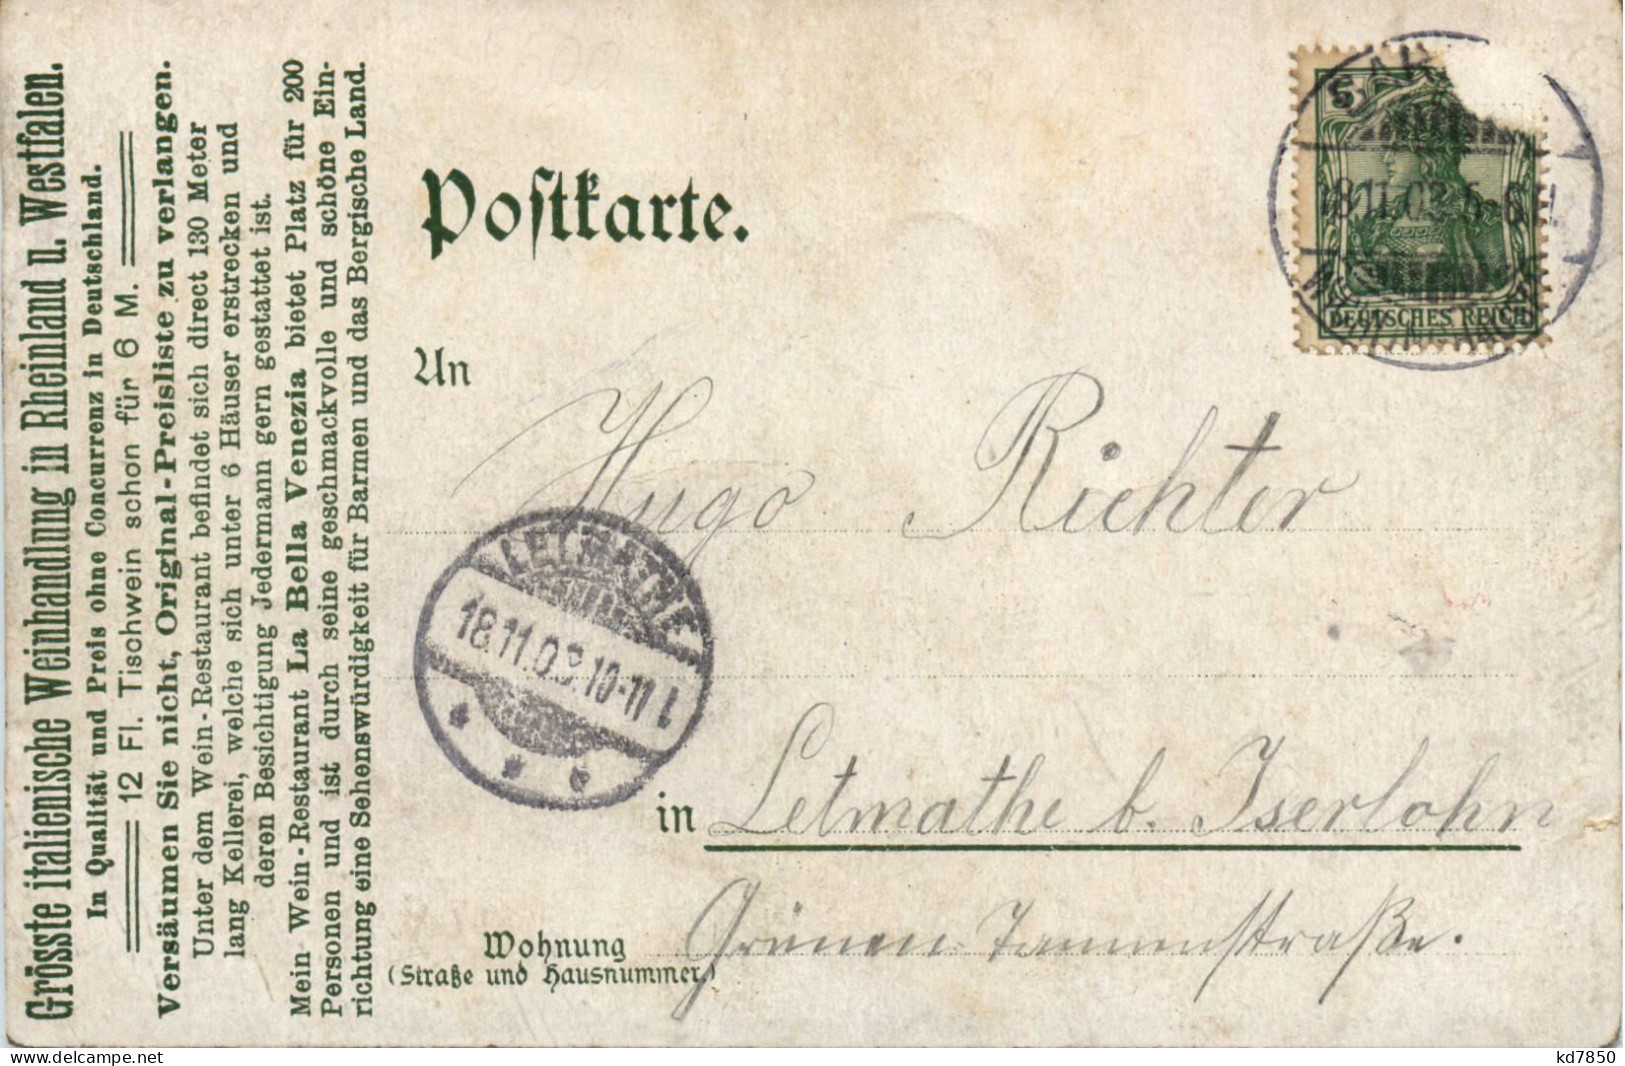 Grösste italienische Weinhandlung in Rheinland u. Westfalen.
In Qualität und Preis ohne Concurrenz in Deutschland.
12 Fl. Tischwein schon für 6 M.
Versäumen Sie nicht, Original-Preisliste zu verlangen.
Unter dem Wein-Restaurant befindet sich direct 130 Meter
lang Kellerei, welche sich unter 6 Häuser erstrecken und
deren Besichtigung Jedermann gern gestattet ist.
Mein Wein-Restaurant La Bella Venezia bietet Platz für 200
Personen und ist durch seine geschmackvolle und schöne Ein-
richtung eine Sehenswürdigkeit für Barmen und das Bergische Land.
Poſtkarte.
5
BAR
18.11.03.5-6N
DEUTSCHES REICH
An
Hugo Richter
LETMATHE
18.11.03.10-11
in Letmathe b. Iserlohn
Wohnung Grünen-Tannenstraße.
(Straße und Hausnummer)
kd7850
www.delcampe.net